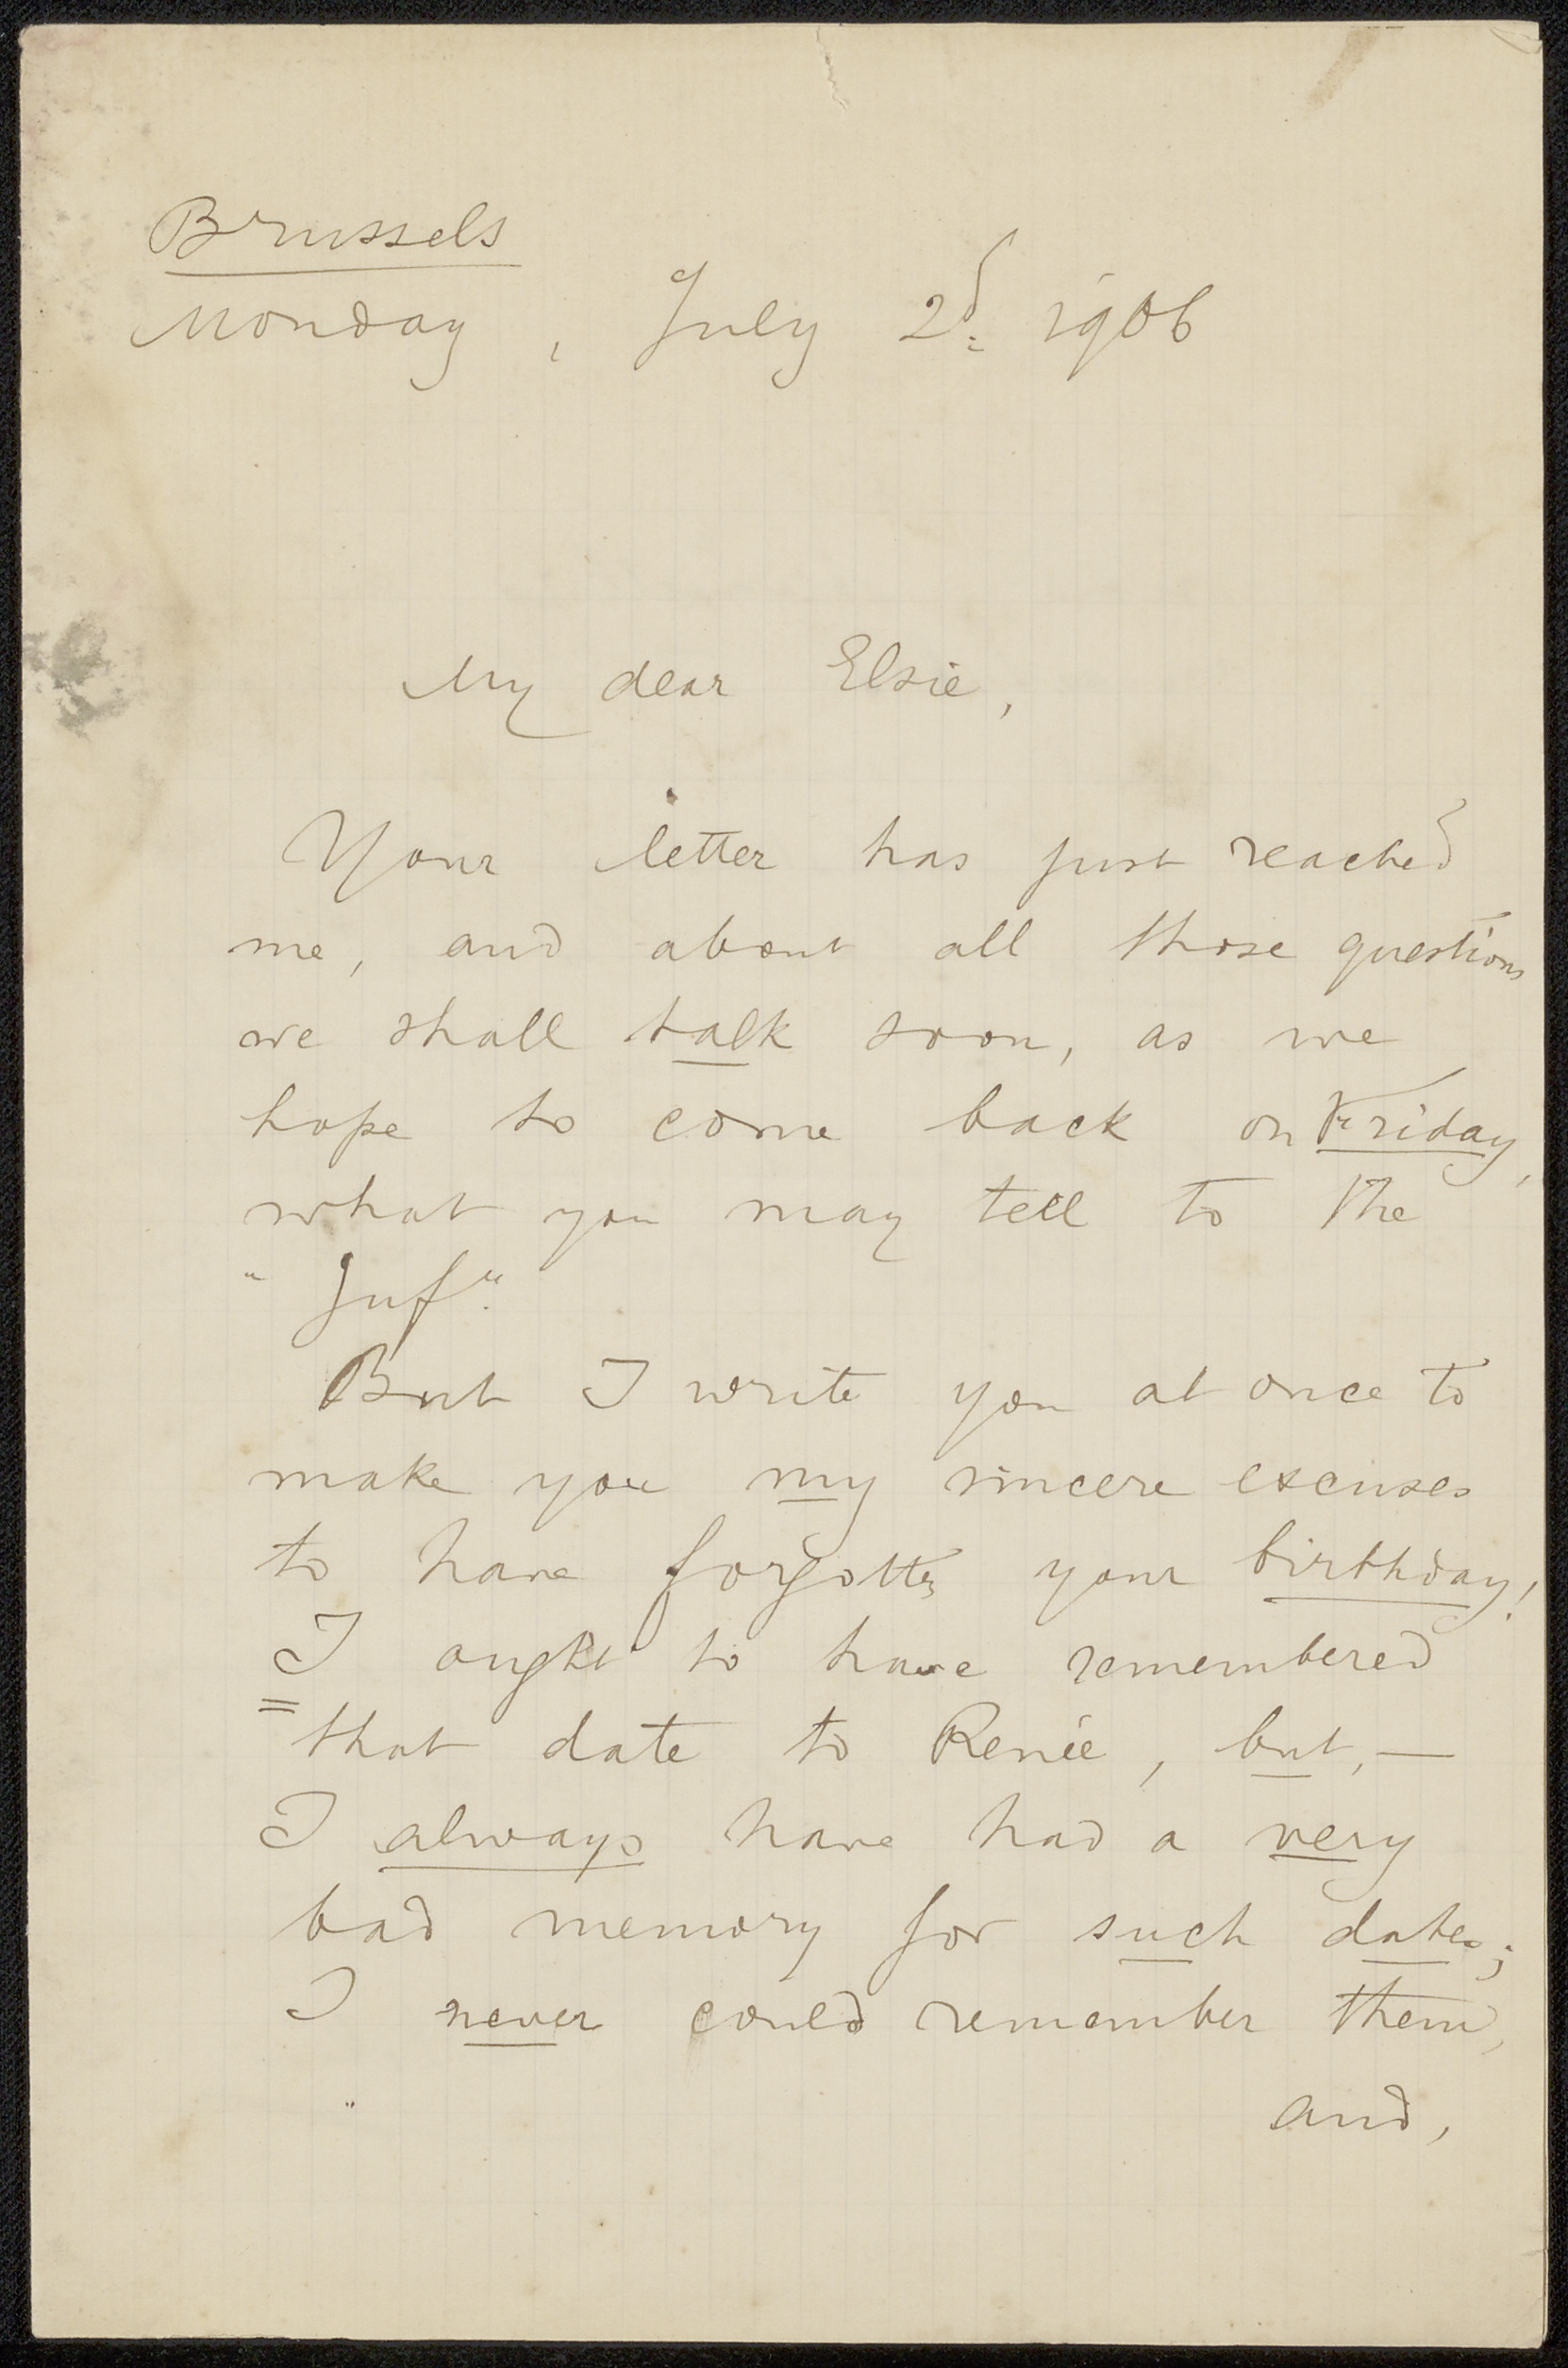 Brussels
Monday, July 2d. 1906
My dear Elsie,
Your letter has just reached
me, and about all those questions
we shall talk soon, as we
hope to come back on Friday,
what you may tell to the
"Juf".
But I write you at once to
make you my sincere excuses
to have forgotten your birthday!
I ought to have remembered
that date to Renée, but, —
I always have had a very
bad memory for such dates;
I never could remember them,
and,